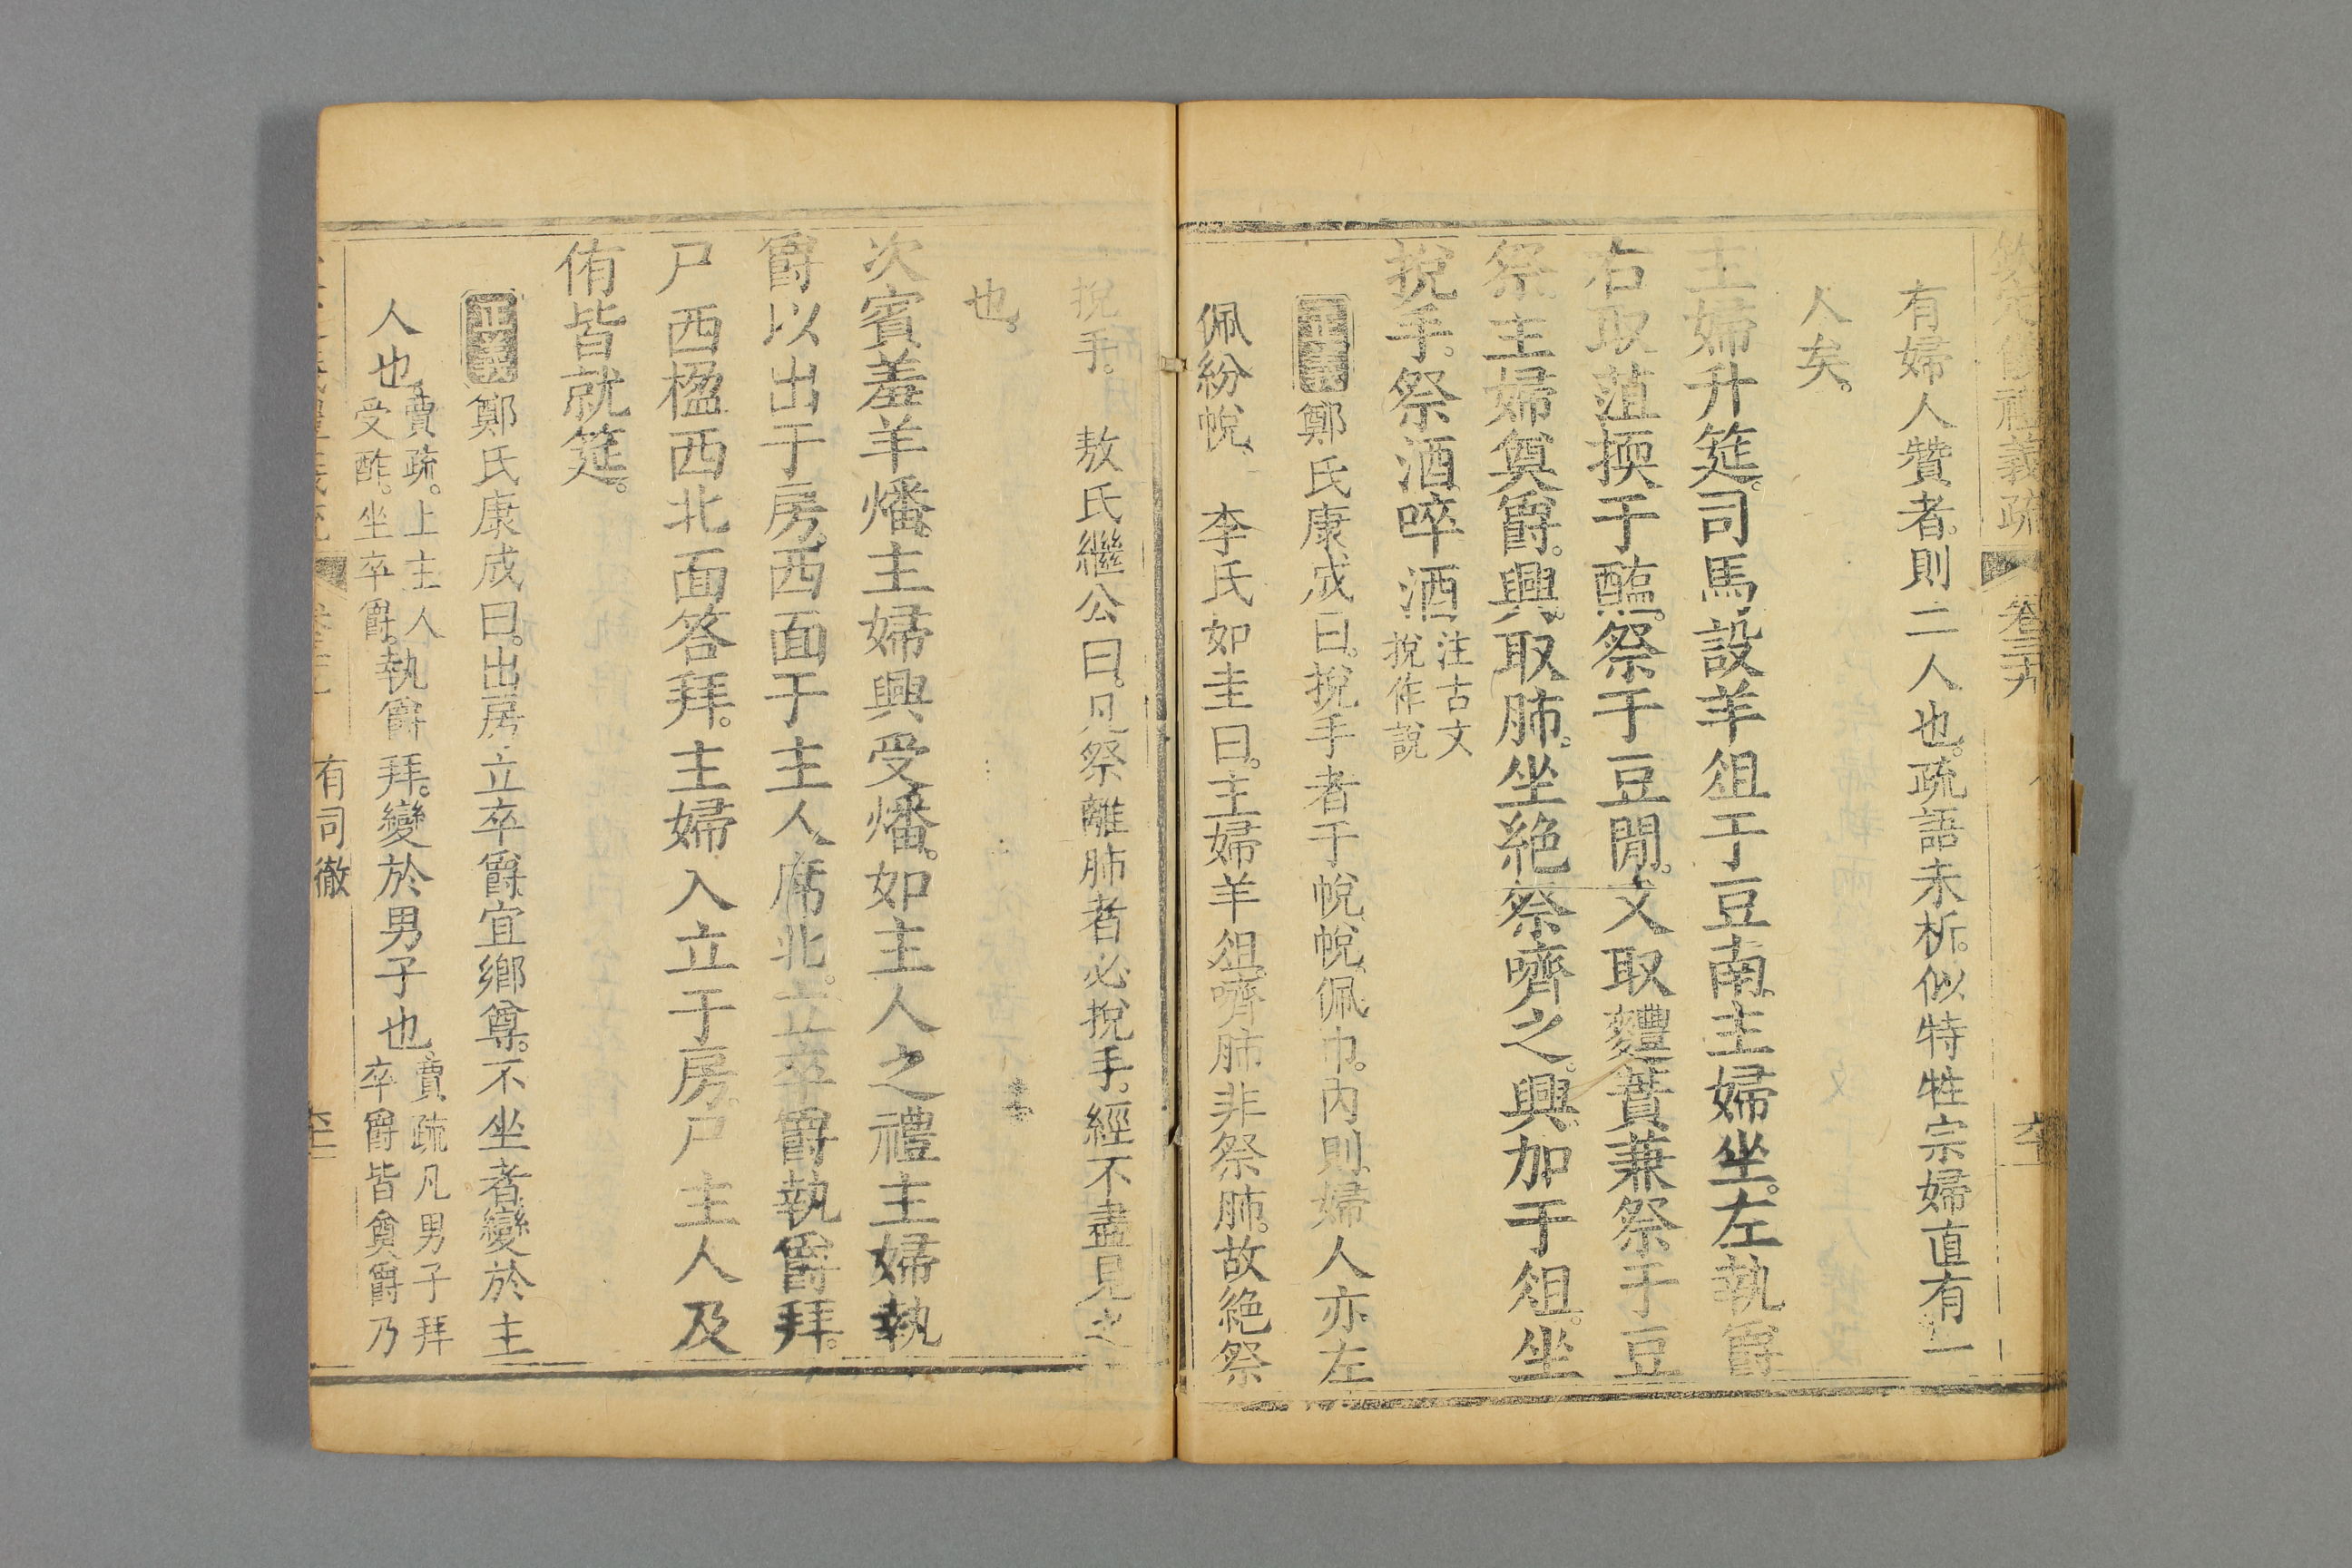 義疏 卷三九
有婦人贊者。則二人也。疏語未析。似特牲宗婦直有一
人矣。
主婦升筵。司馬設羊俎于豆南。主婦坐。左執爵
右取菹㨎于醢。祭于豆閒。又取麷蕡兼祭于豆
祭。主婦奠爵。興。取肺。坐絶祭。嚌之。興。加于俎。坐
挩手。祭酒。啐酒 注古文挩作說
正義 鄭氏康成曰。挩手者于帨。帨。佩巾。內則。婦人亦左
佩紛帨。 李氏如圭曰。主婦羊俎。嚌肺非祭肺。故絶祭
挩手。 敖氏繼公曰。凡祭離肺者必挩手。經不盡見之
也。
次賓羞羊燔。主婦興受燔。如主人之禮。主婦執
爵以出于房。西面于主人席北。立卒爵。執爵拜。
尸西楹西北面答拜。主婦入立于房。尸主人及
侑皆就筵。
正義 鄭氏康成曰。出房立卒爵。宜鄉尊。不坐者。變於主
人也。賈疏。上主人受酢。坐卒爵。執爵拜。變於男子也。賈疏凡男子拜卒爵皆奠爵乃
有司徹 六二